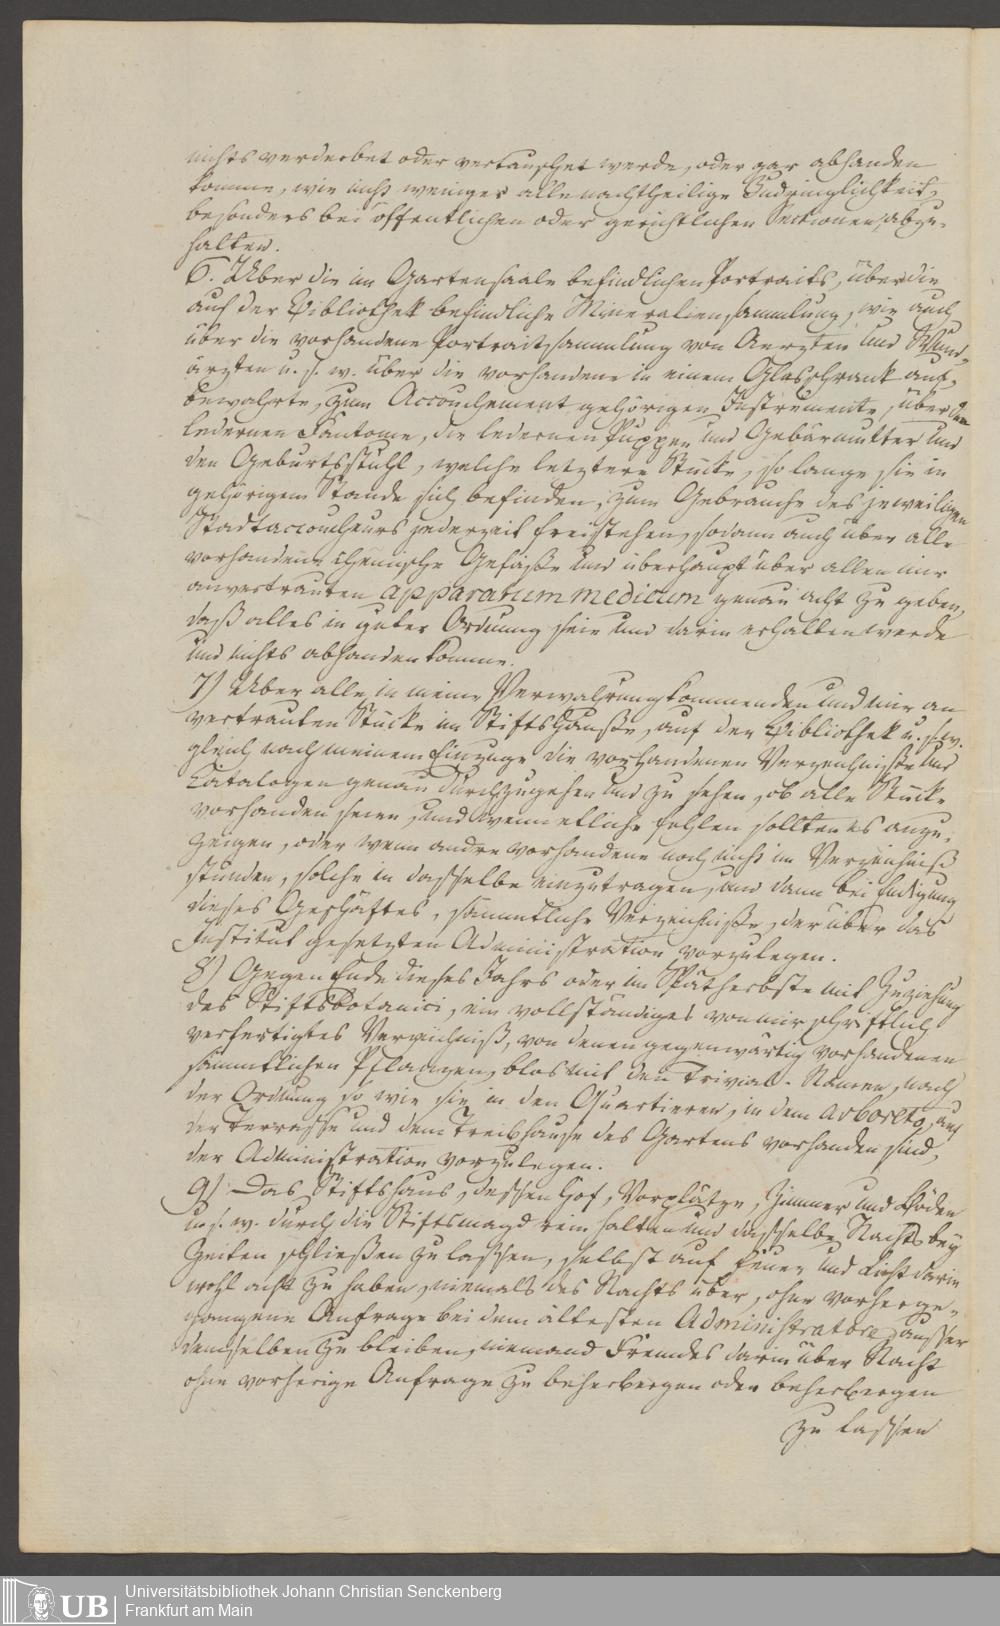 nichts verderbet oder vertauschet werde, oder gar abhanden
komme, wie nicht weniger alle nachtheilige Zudringlichkeit,
besonders bei öffentlichen oder gerichtlichen Sectionen, abzu-
halten.
6. Ueber die im Gartensaale befindlichen Portraits, über die
auf der Bibliothek befindliche Mineraliensammlung, wie auch
über die vorhandene Portraitsammlung von Aerzten und Wund-
ärzten u. s. w. über die vorhandene in einem Glasschrank auf-
bewahrte, zum Accouchement gehörigen Instrumente, über den
ledernen Fantome, die ledernen Puppen und Gebärmutter und
den Geburtsstuhl, welche letztere Stücke, so lange sie in
gehörigem Stande sich befinden, zum Gebrauche des jeweiligen
Stadtaccoucheurs jederzeit freistehen, sodann auch über alle
vorhandene chemische Gefäße und überhaupt über allen mir
anvertrauten apparatum medicum genau acht zu geben,
daß alles in guter Ordnung seie und darin erhalten werde
und nichts abhanden komme.
7) Über alle in meine Verwahrung kommenden und mir an
vertrauten Stücke im Stiftshause, auf der Bibliothek u. s. w.
gleich nach meinem Einzuge die vorhandenen Verzeichnisse und
Catalogen genau durchzugehen und zu sehen, ob alle Stücke
vorhanden seien, und wenn etliche fehlen sollten es anzu-
zeigen, oder wenn andre vorhandene noch nicht im Verzeichniß
stünden, solche in dasselbe einzutragen, und dann bei Endigung
dieses Geschäftes, sämmtliche Verzeichniße, der über das
Institut gesetzten Administration vorzulegen.
8) Gegen Ende dieses Jahrs oder im Spätherbste mit Zuziehung
des Stiftsbotanici, ein vollständiges von mir schriftlich
verfertigtes Verzeichniß, von denen gegenwärtig vorhandenen
sämmtlichen Pflanzen, blos mit den Trivial-Namen, nach
der Ordnung so wie sie in den Quartieren, in dem Arboreto, auf
der Terrasse und dem Treibhause des Gartens vorhanden sind,
der Administration vorzulegen.
9) Das Stiftshaus, dessen Hof, Vorplätze, Zimmer und Böden
u. s. w. durch die Stiftsmagd rein halten und dasselbe Nachts bey
Zeiten schließen zu lassen, selbst auf Feuer und Licht darin
wohl acht zu haben, niemals des Nachts über, ohne vorherge-
gangene Anfrage bei dem ältesten Administratore, ausser
demselben zu bleiben, niemand Fremdes darin über Nacht
ohne vorherige Anfrage zu beherbergen oder beherbergen
zu lassen
UB Universitätsbibliothek Johann Christian Senckenberg
Frankfurt am Main